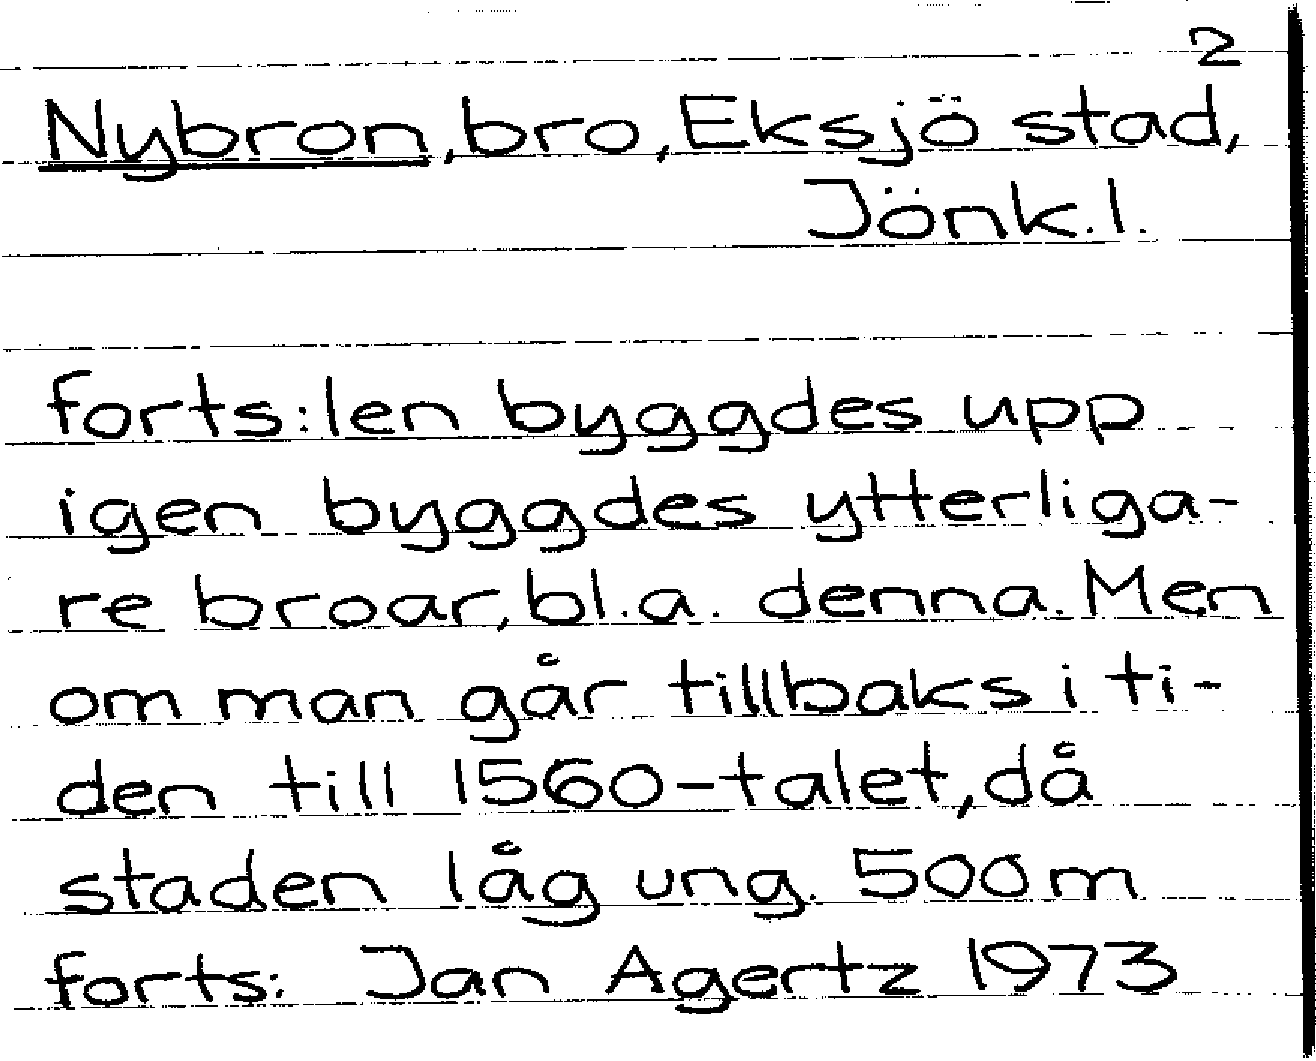 2
Nybron, bro, Eksjö stad,
Jönk.l.
forts:len byggdes upp
igen byggdes ytterliga-
re broar, bl.a. denna. Men
om man går tillbaks i ti-
den till 1560-talet, då
staden låg ung. 500 m
forts: Jan Agertz 1973